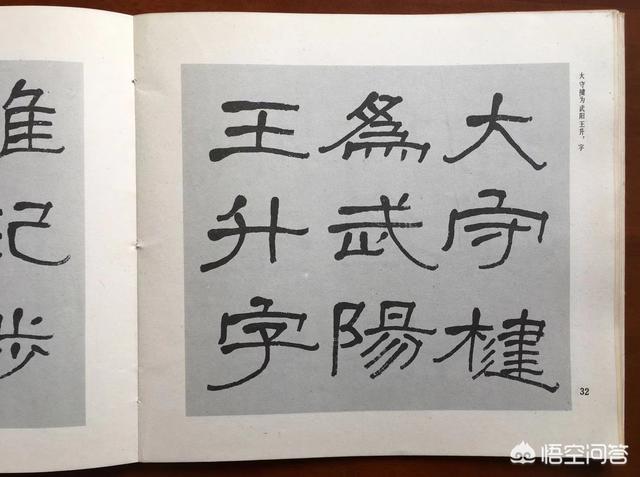 大守楗
為武陽
王升字
大守楗为武阳王升，字
32
隹
记
步
悟空问答